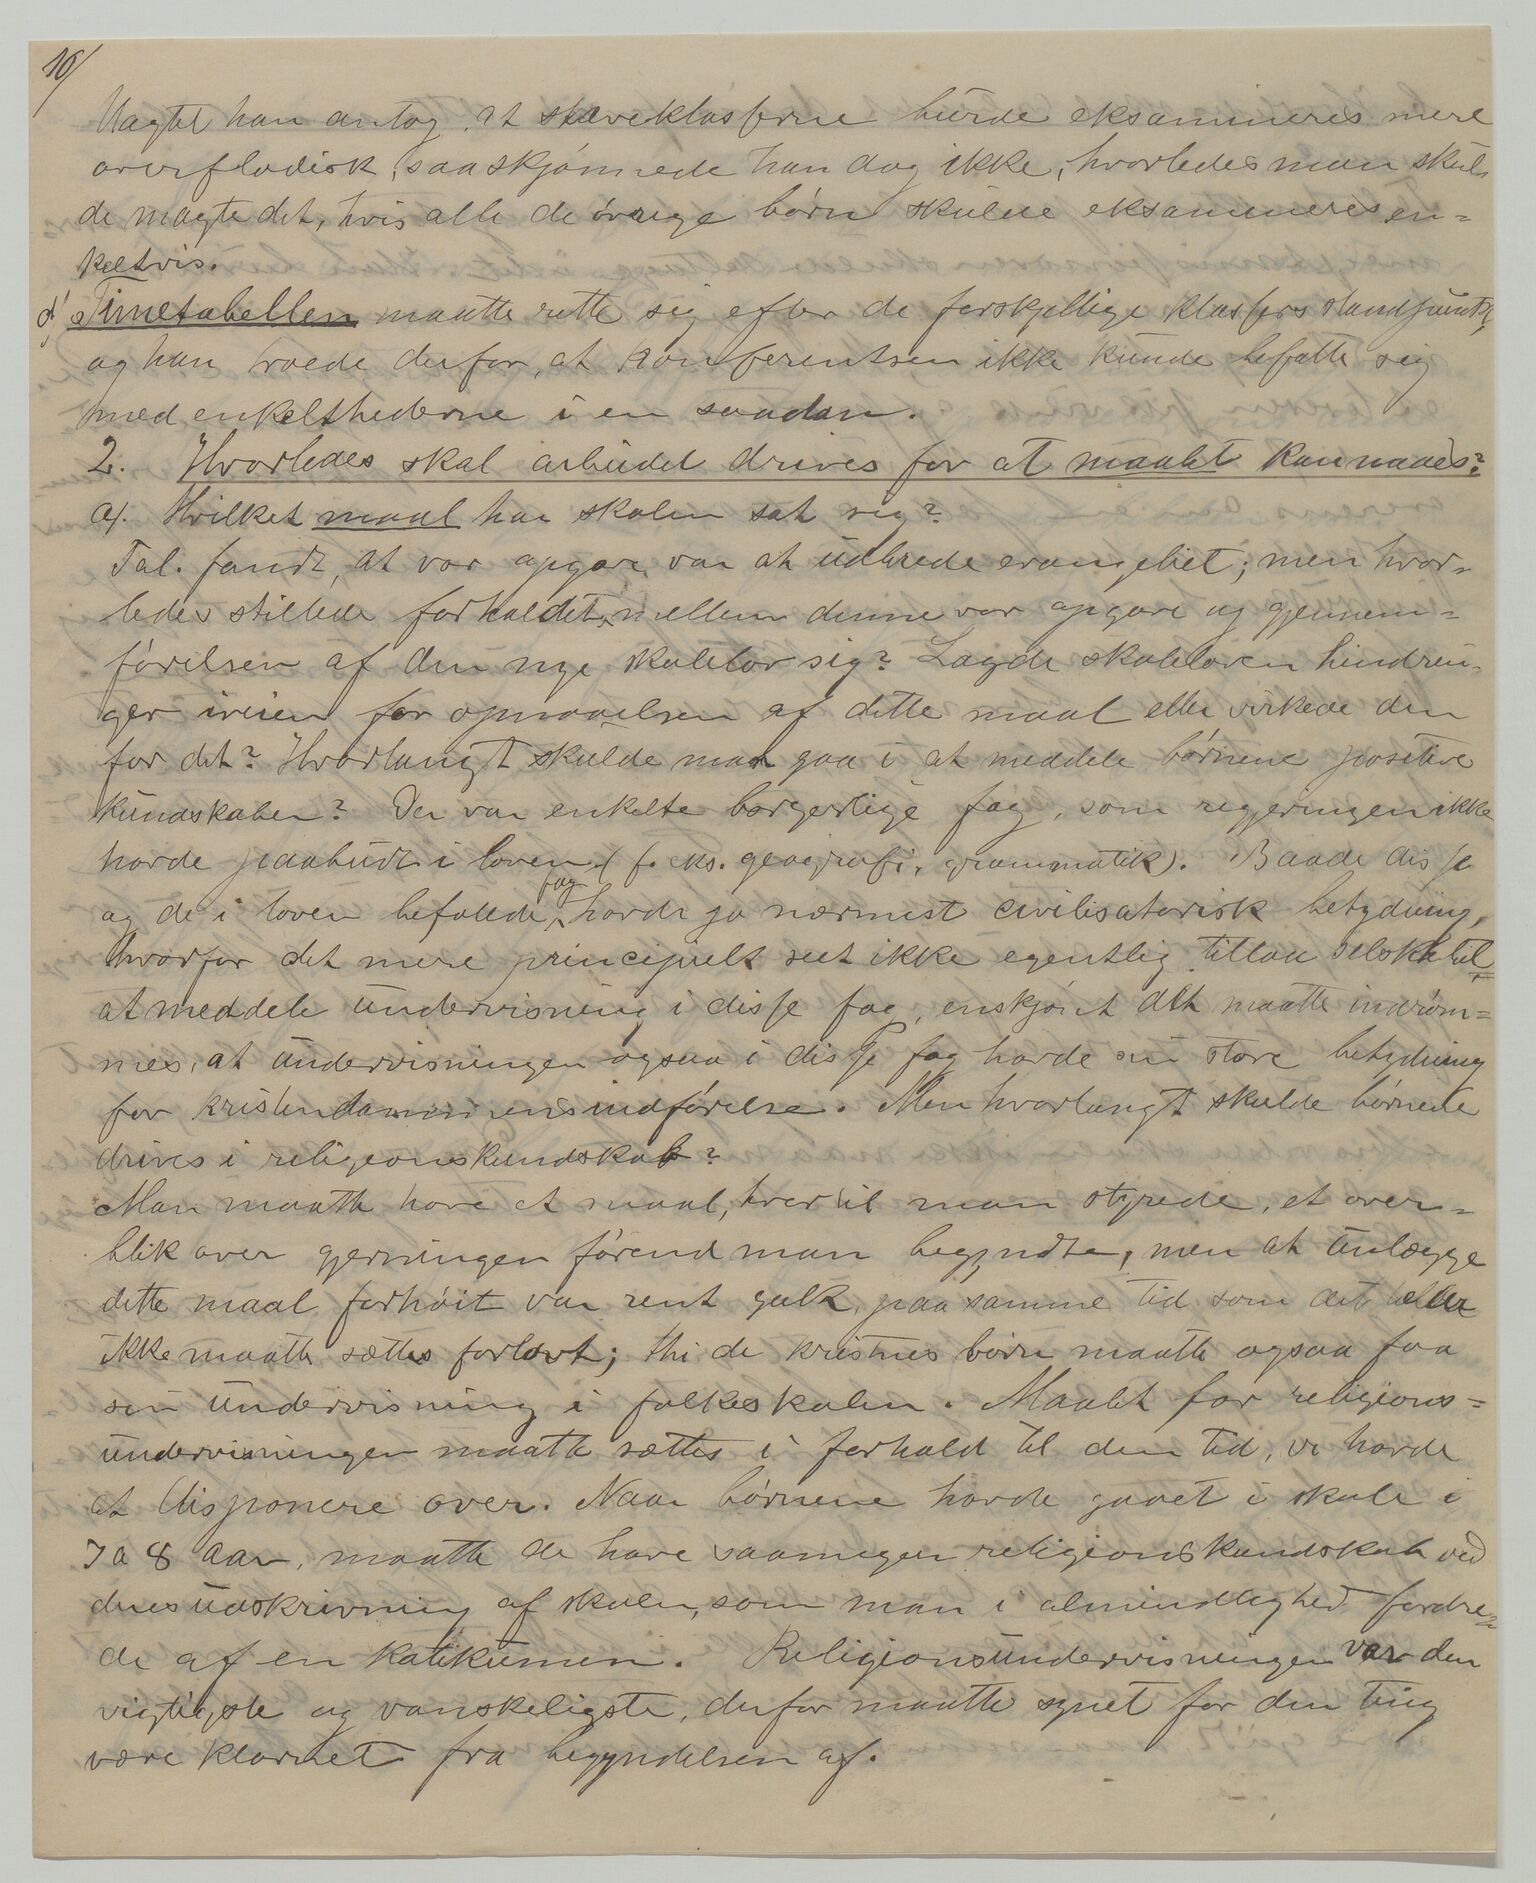 10/
Uagtet han antog, at staveklasserne burde eksamineres mere
overfladisk, saa skjønnede han dog ikke, hvorledes man skul-
de magte det, hvis alle de øvrige børn skulde eksamineres en-
keltvis.
d/ Timetabellen maatte rette sig efter de forskjellige klassers standpunkt,
og han troede derfor, at konferentsen ikke kunde befatte sig
med enkelthederne i en saadan.
2. Hvorledes skal arbeidet drives for at maalet kan naaes?
a/. Hvilket maal har skolen sat sig?
Tal. fandt, at vor opgave var at udbrede evangeliet; men hvor-
ledes stillede forholdet mellem denne vor opgave og gjennem-
førelsen af den nye skolelov sig? Lagde skoleloven hindrin-
ger iveien for opnaaelsen af dette maal eller virkede den
for det? Hvorlangt skulde man gaa i at meddele børnene positive
kundskaber? Der var enkelte borgerlige fag, som regjeringen ikke
havde paabudt i loven (f. eks. geografi, grammatik). Baade disse
og de i loven befalede fag havde jo nærmest civilisatorisk betydning,
hvorfor det mere principielt seet ikke egentlig tillaa selskabet
at meddele undervisning i disse fag, enskjønt det maatte indrøm-
mes, at undervisningen ogsaa i disse fag havde sin store betydning
for kristendommens indførelse. Men hvorlangt skulde børnene
drives i religionskundskab?
Man maatte have et maal, hvortil man styrede, et over-
blik over gjerningen førend man begyndte, men at anlægge
dette maal forhøit var rent galt, paa samme tid som det heller
ikke maatte sættes forlavt; thi de kristnes børn maatte ogsaa faa
sin undervisning i folkeskolen. Maalet for religions-
undervisningen maatte sættes i forhold til den tid, vi havde
at disponere over. Naar børnene havde gaaet i skole i
7 a 8 aar, maatte de have saamegen religionskundskab ved
deres udskrivning af skolen, som man i almindelighed fordre-
de af en katekumen. Religionsundervisningen var den
vigtigste og vanskeligste, derfor maatte synet for den ting
være klarnet fra begyndelsen af.